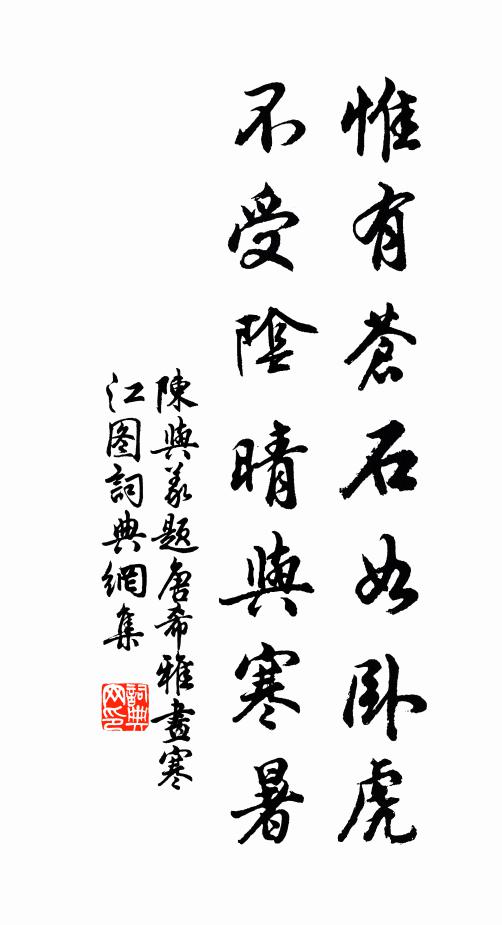 惟有蒼石如卧虎
不受陰晴與寒暑
陳與義題唐希雅畫寒
江图詞典網集
詞典
网印